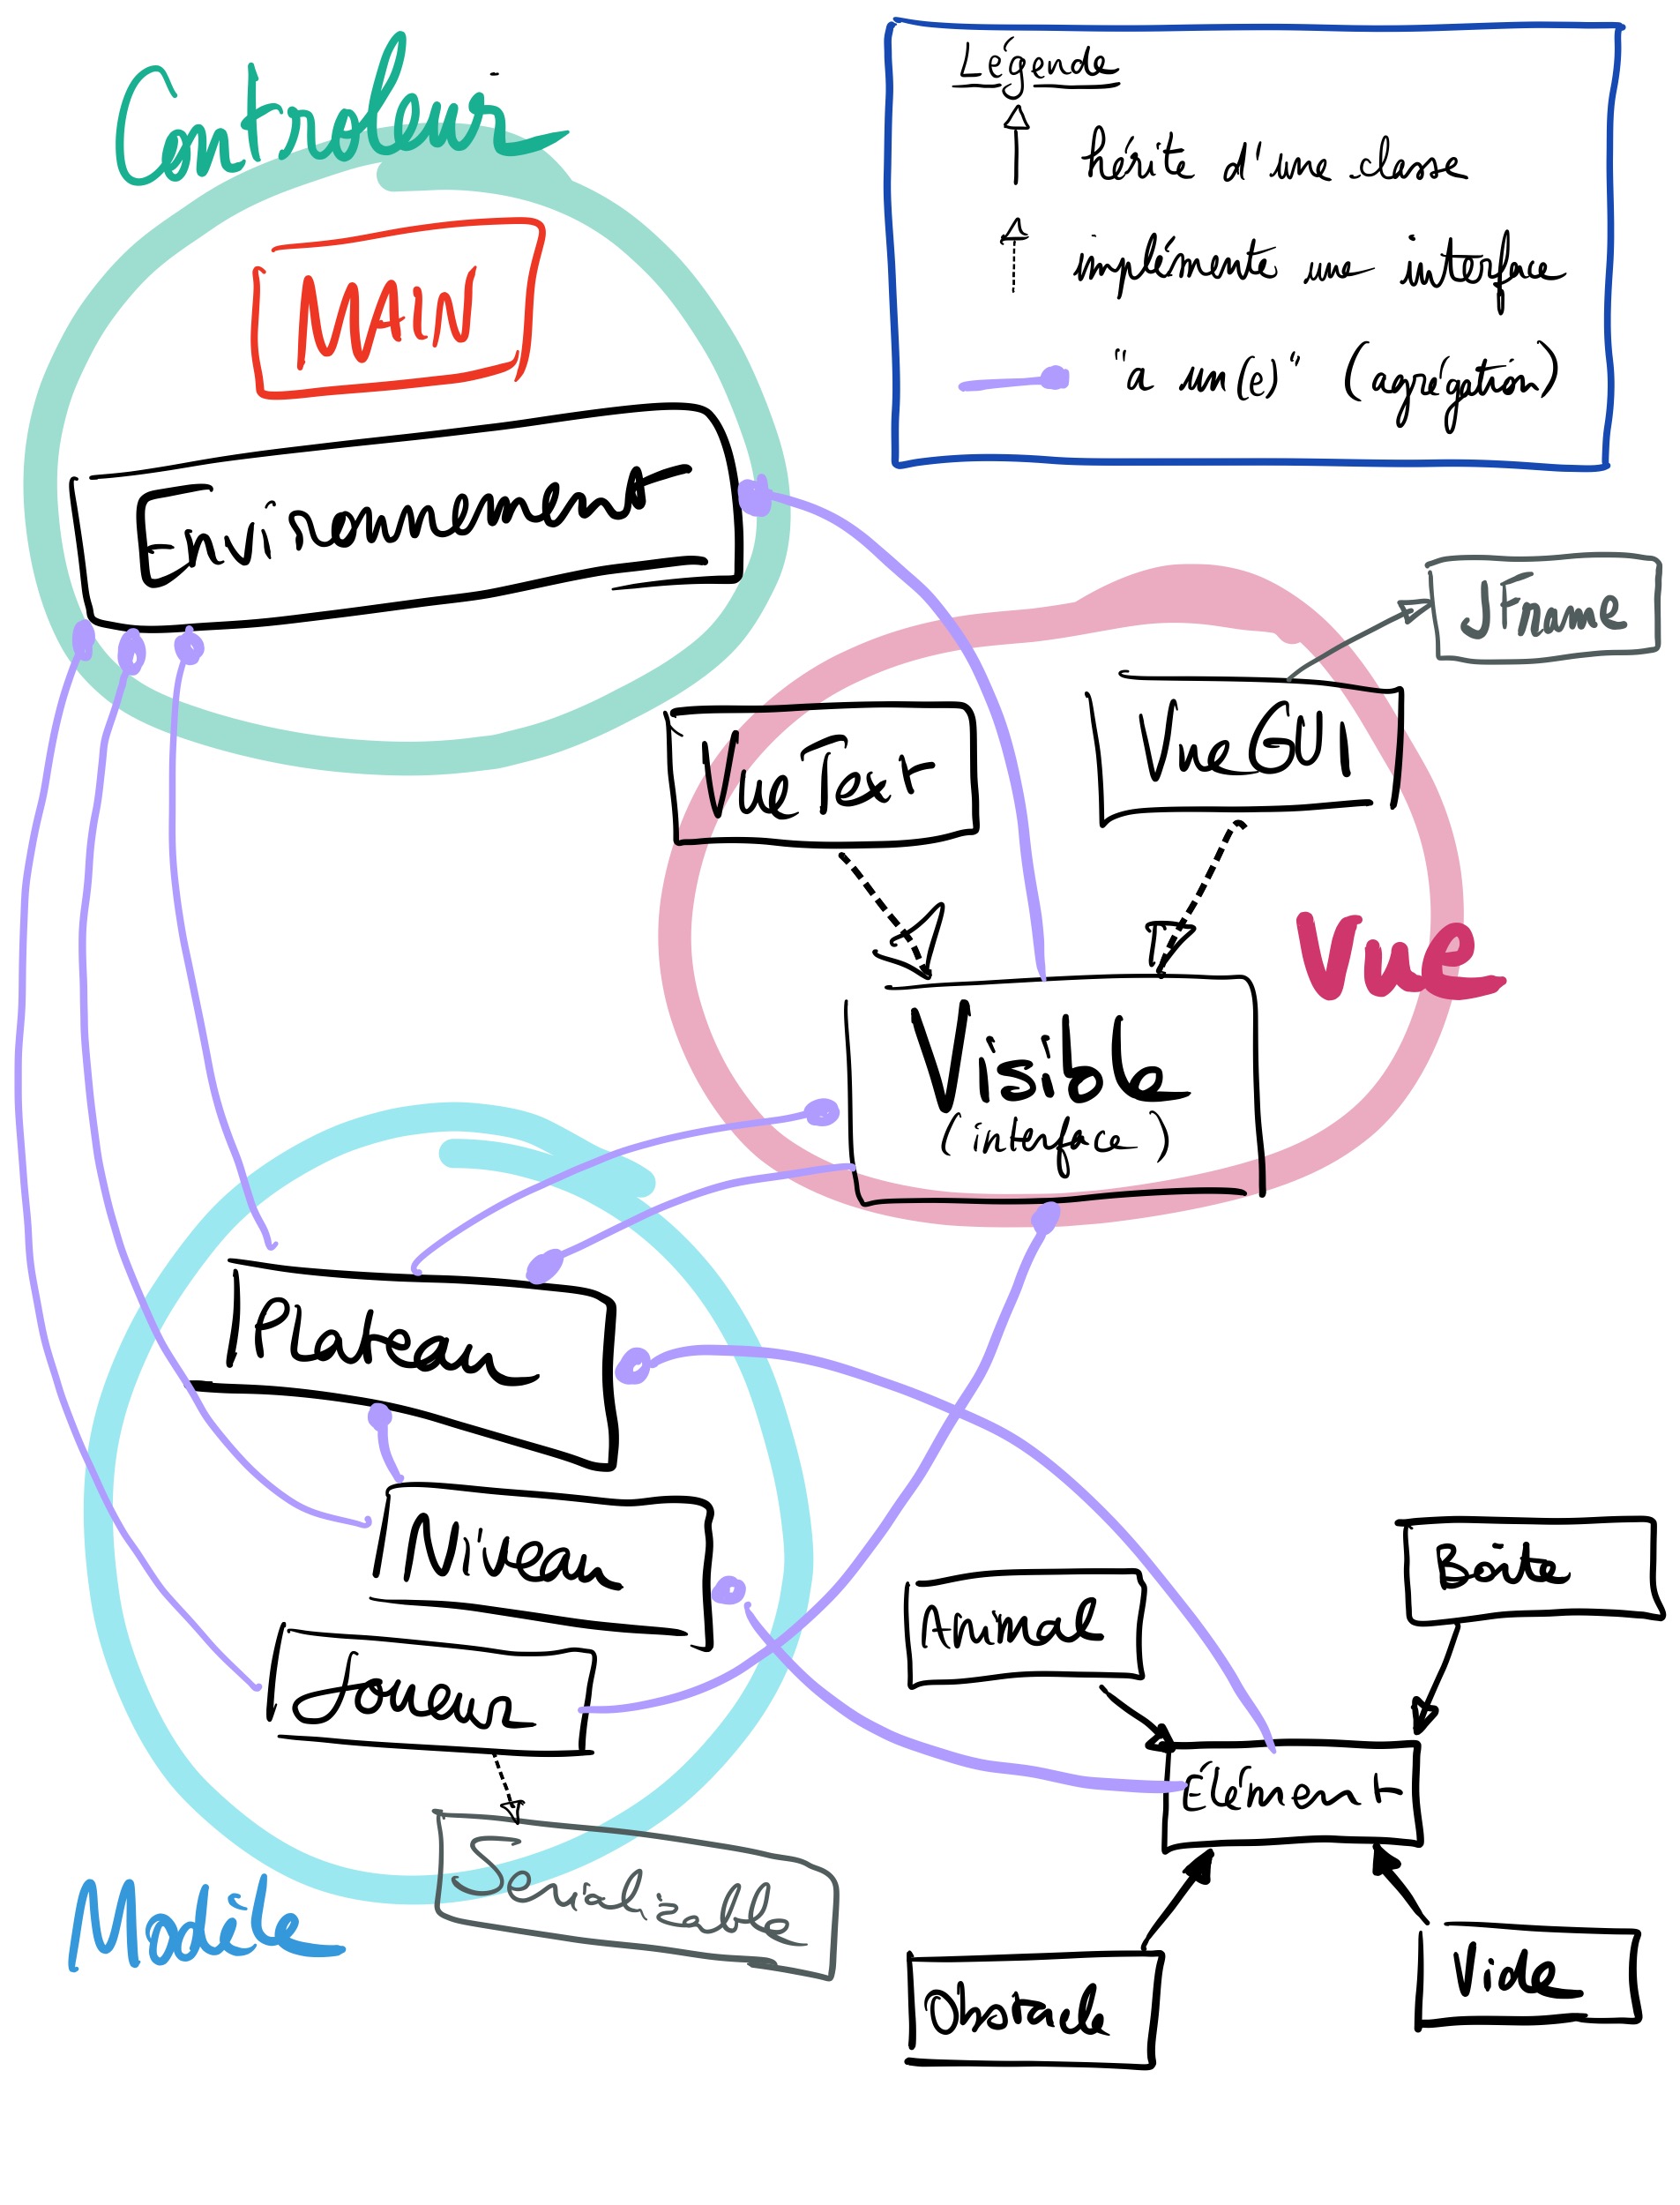 Controleur
MAIN
Environnement
Légende
hérite d'une classe
implémente une interface
"a un(e)" (agrégation)
JFrame
VueText
VueGUI
Vue
Visible
(interface)
Plateau
Niveau
Joueur
Serializable
Modèle
Animal
Boîte
Élément
Obstacle
Vide